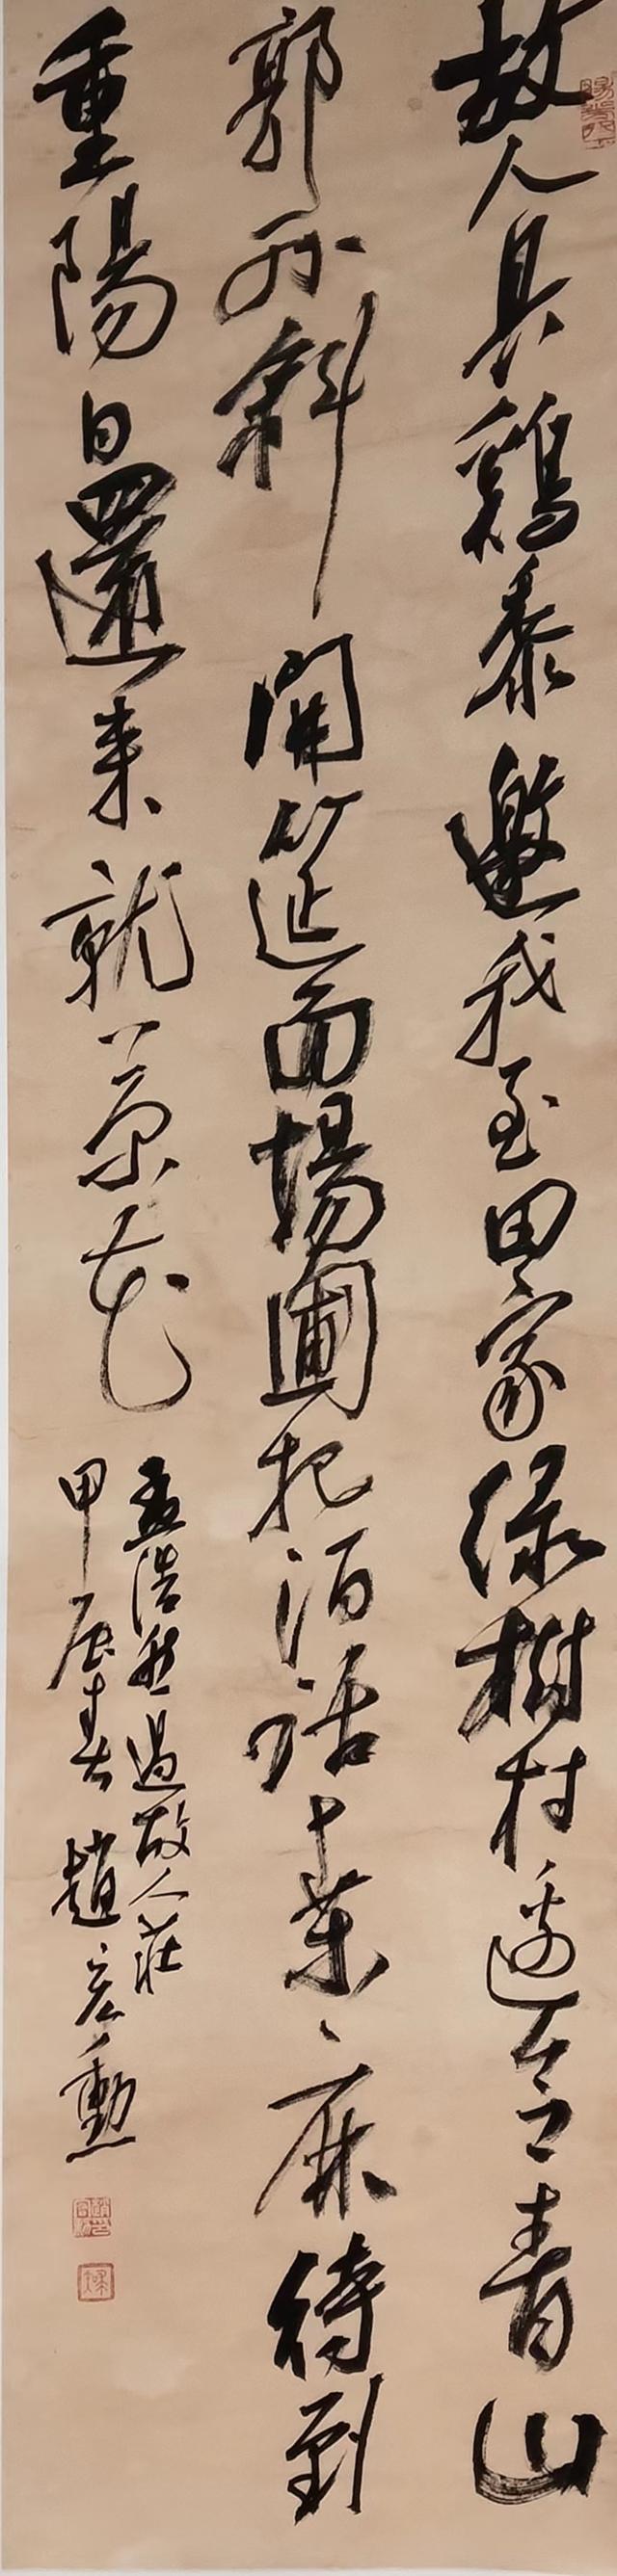 故人具鷄黍邀我至田家緑樹村邊合青山
郭外斜開筵面場圃把酒話桑麻待到
重陽日還来就菊花
孟浩然過故人莊
甲辰春趙勳